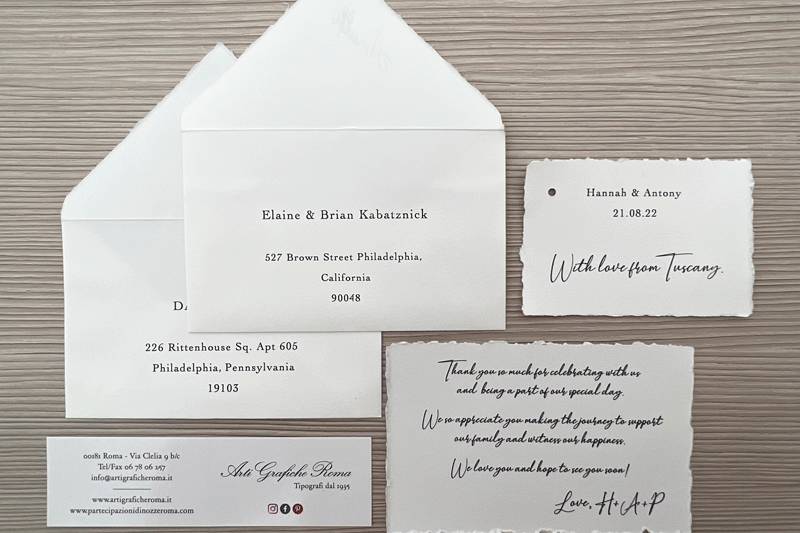 Elaine & Brian Kabatznick
527 Brown Street Philadelphia,
California
90048
226 Rittenhouse Sq. Apt 605
Philadelphia, Pennsylvania
19103
Hannah & Antony
21.08.22
With love from Tuscany.
Thank you so much for celebrating with us
and being a part of our special day.
We so appreciate you making the journey to support
our family and witness our happiness.
We love you and hope to see you soon!
Love, H+A+P
00181 Roma - Via Clelia 9 b/c
Tel/Fax 06 78 06 257
info@artigraficheroma.it
www.artigraficheroma.it
www.partecipazionidinozzeroma.com
Arti Grafiche Roma
Tipografi dal 1935